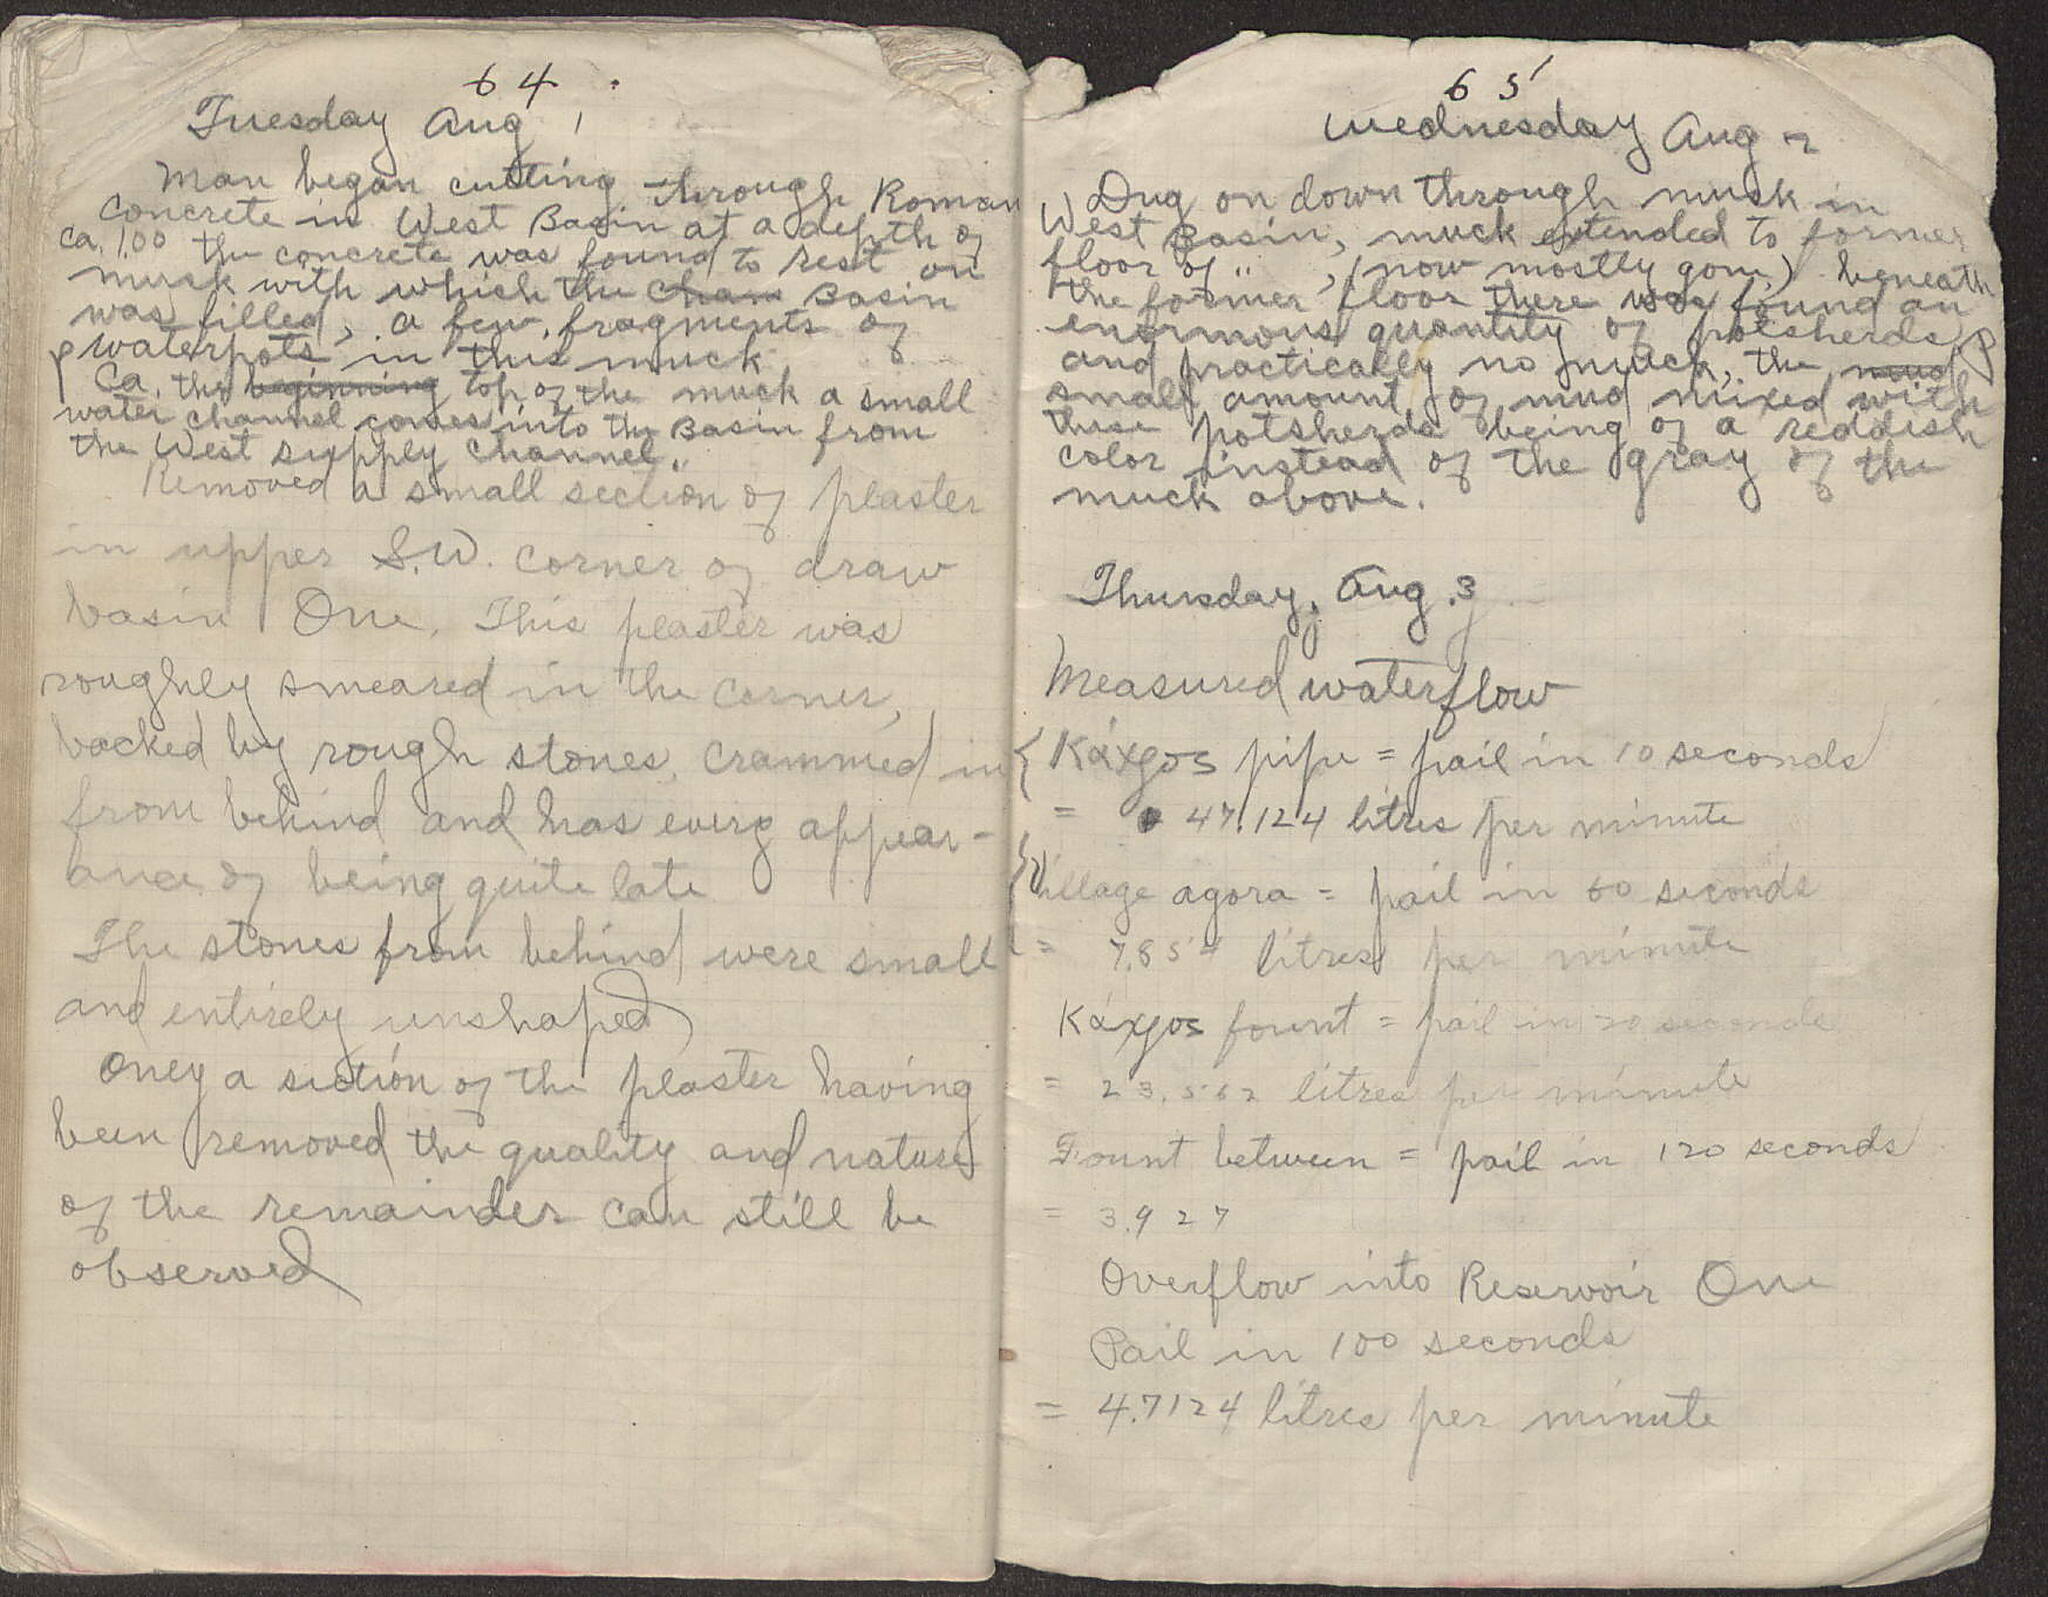 64
Tuesday Aug 1
Man began cutting through Roman
concrete in West Basin at a depth of
ca. 1.00 the concrete was found to rest on
musk with which the chan Basin
was filled, a few fragments of
P waterpots in this muck
Ca. the beginning top of the muck a small
water channel comes into the Basin from
the West supply channel.
Removed a small section of plaster
in upper S.W. corner of draw
basin One. This plaster was
roughly smeared in the corner,
backed by rough stones, crammed in
from behind and has every appear-
ance of being quite late
The stones from behind were small
and entirely unshaped
Only a section of the plaster having
been removed the quality and nature
of the remainder can still be
observed
65
Wednesday Aug 2
Dug on down through musk in
West Basin, muck extended to former
floor of " , (now mostly gone) beneath
the former floor there was found an
enormous quantity of potsherds P
and practically no muck, the mud
small amount of mud mixed with
these potsherds being of a reddish
color instead of the gray of the
muck above.
Thursday, Aug. 3
Measured waterflow
Κάχγος pipe = pail in 10 seconds
= 47.124 litres per minute
Village agora = pail in 60 seconds
= 7.854 litres per minute
Κάχγος fount = pail in 20 seconds
= 23.562 litres per minute
Fount between = pail in 120 seconds
= 3.927
Overflow into Reservoir One
Pail in 100 seconds
= 4.7124 litres per minute